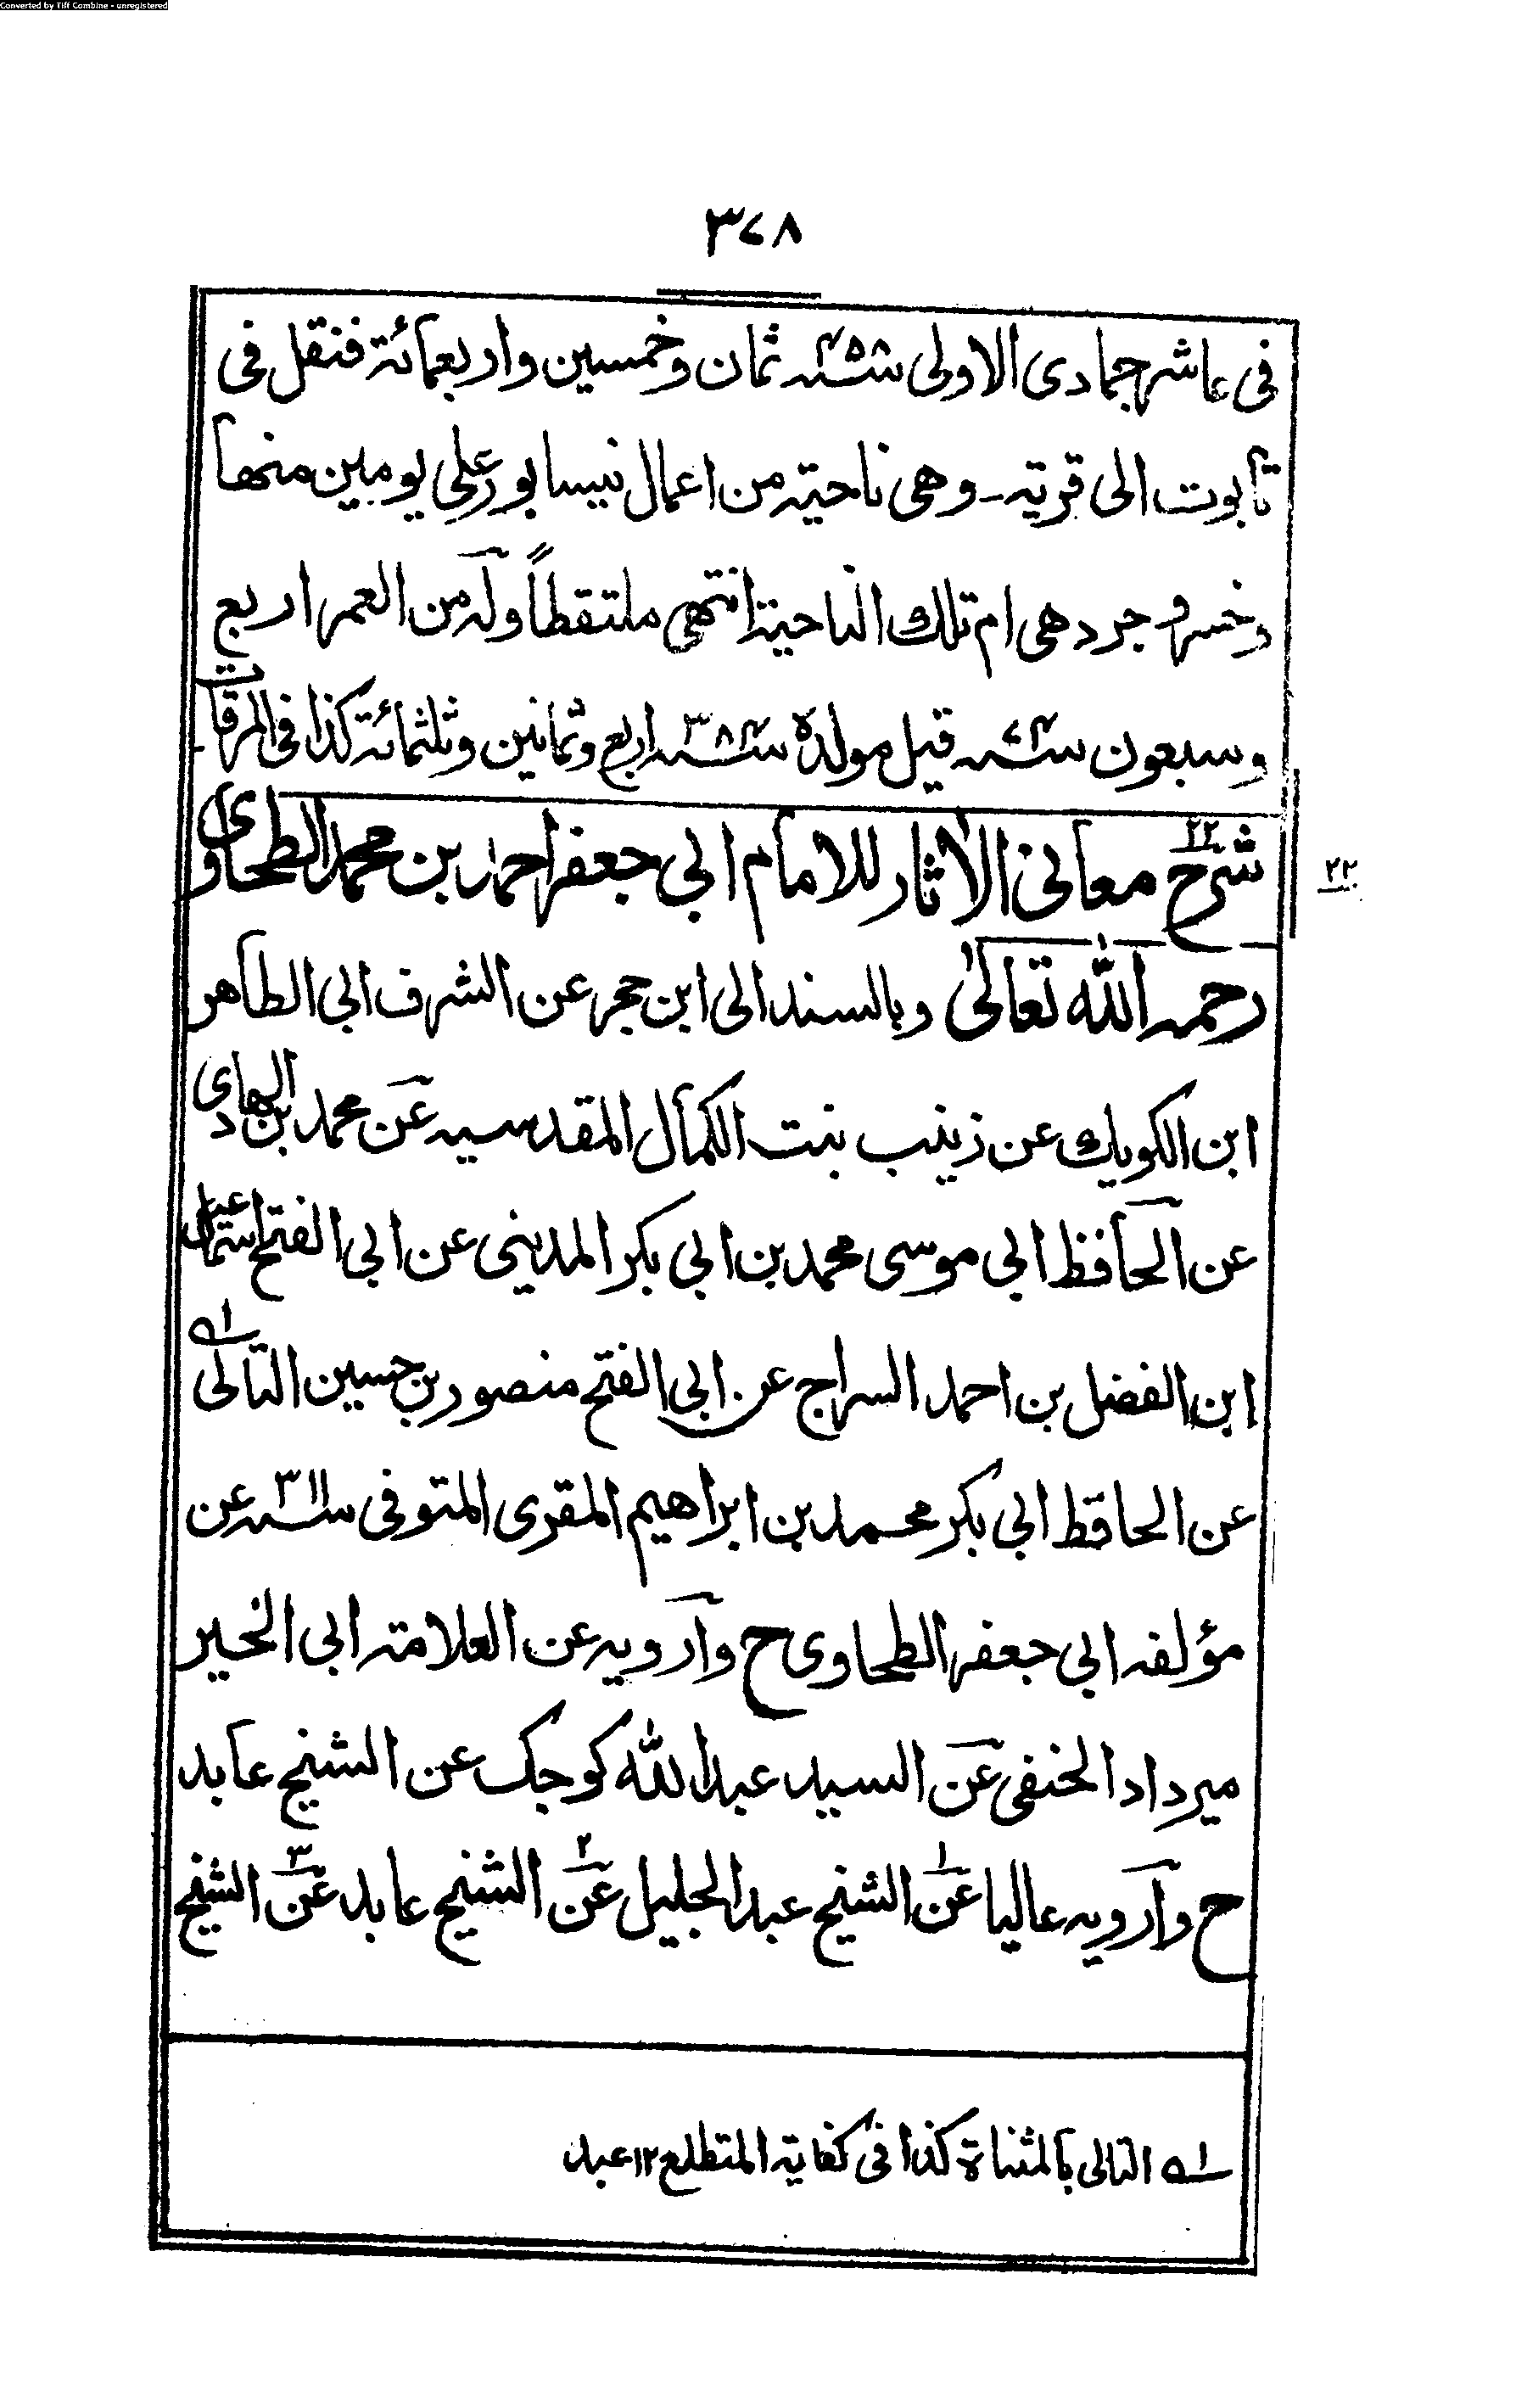 Converted by Tiff Combine - unregistered
٣٧٨
فى عاشر جمادى الاولى سنة ٤٥٨ ثمان وخمسين واربعمائة فنقل فى
تابوت الى قريته ـ وهى ناحية من اعمال نيسابور على يومين منها
وخسروجرد هى ام تلك الناحية انتهى ملتقطاً وله من العمر اربع
وسبعون سنة ٧٤ قيل مولده سنة ٣٨٤ اربع وثمانين وثلثمائة كذا فى المرقات
٢٢
شرح معانى الاثار للامام ابى جعفر احمد بن محمد الطحاوى
٢٢
رحمه الله تعالىٰ وبالسند الى ابن حجر عن الشرف ابى الطاهر
ابن الكويك عن زينب بنت الكمال المقدسيه عن محمد بن الهادى
عن الحافظ ابى موسى محمد بن ابى بكر المدينى عن ابى الفتح اسمعيل
ابن الفضل بن احمد السراج عن ابى الفتح منصور بن حسين التالى ١ه
عن الحافظ ابى بكر محمد بن ابراهيم المقرى المتوفى سنة ٣١١ عن
مؤلفه ابى جعفر الطحاوى ح وارويه عن العلامة ابى الخير
ميرداد الحنفى عن السيد عبدالله كوجك عن الشيخ عابد
ح وارويه عاليا عن ١ الشيخ عبدالجليل عن ٢ الشيخ عابد عن ٣ الشيخ
١ه التالى بالمثناة كذا فى كفاية المتطلع ١٢ عبد